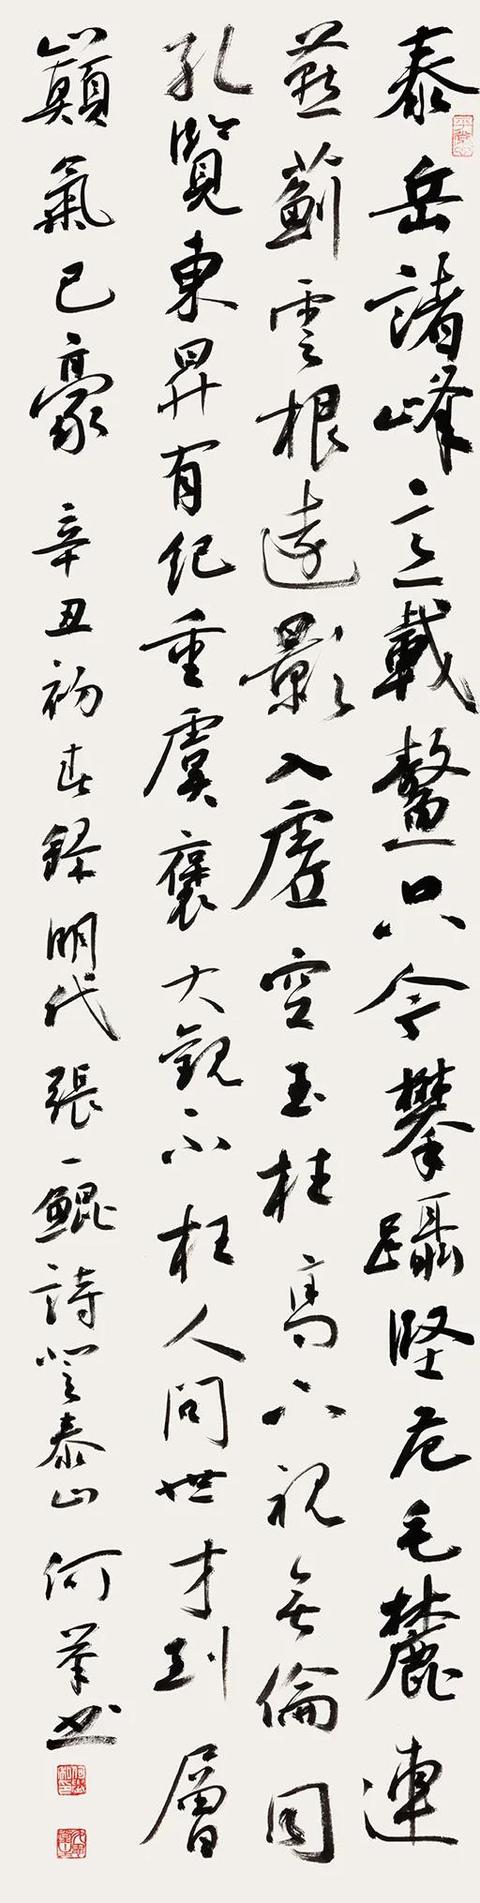 泰岳諸峰立載鼇只令攀躡堅危毛麓連
燕薊雲根遠影入虛空玉柱高下視無倫同
孔覽東昇有紀重虞褒大觀不枉人間世才到層
巔氣已豪 辛丑初春錄明代張一鯤詩登泰山 何書